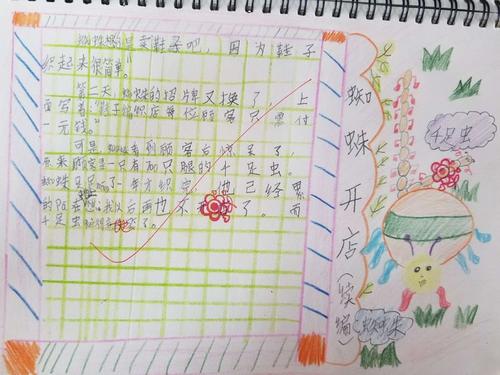 蜘蛛 是卖鞋子吧，因为鞋子
织起来很简单"
第二天，蜘蛛的招牌又换了，上
面写着："鞋子编织店每位顾客只需付
一元钱。"
可是，蜘蛛看到顾客后惊呆了，
原来顾客是一只有 只腿的千足虫。
蜘蛛足足 了一年才织完，他已经累
的 在 ：我以后再也不 了。而
千足虫 了。
蜘蛛开店(续编)
千足虫
蜘蛛